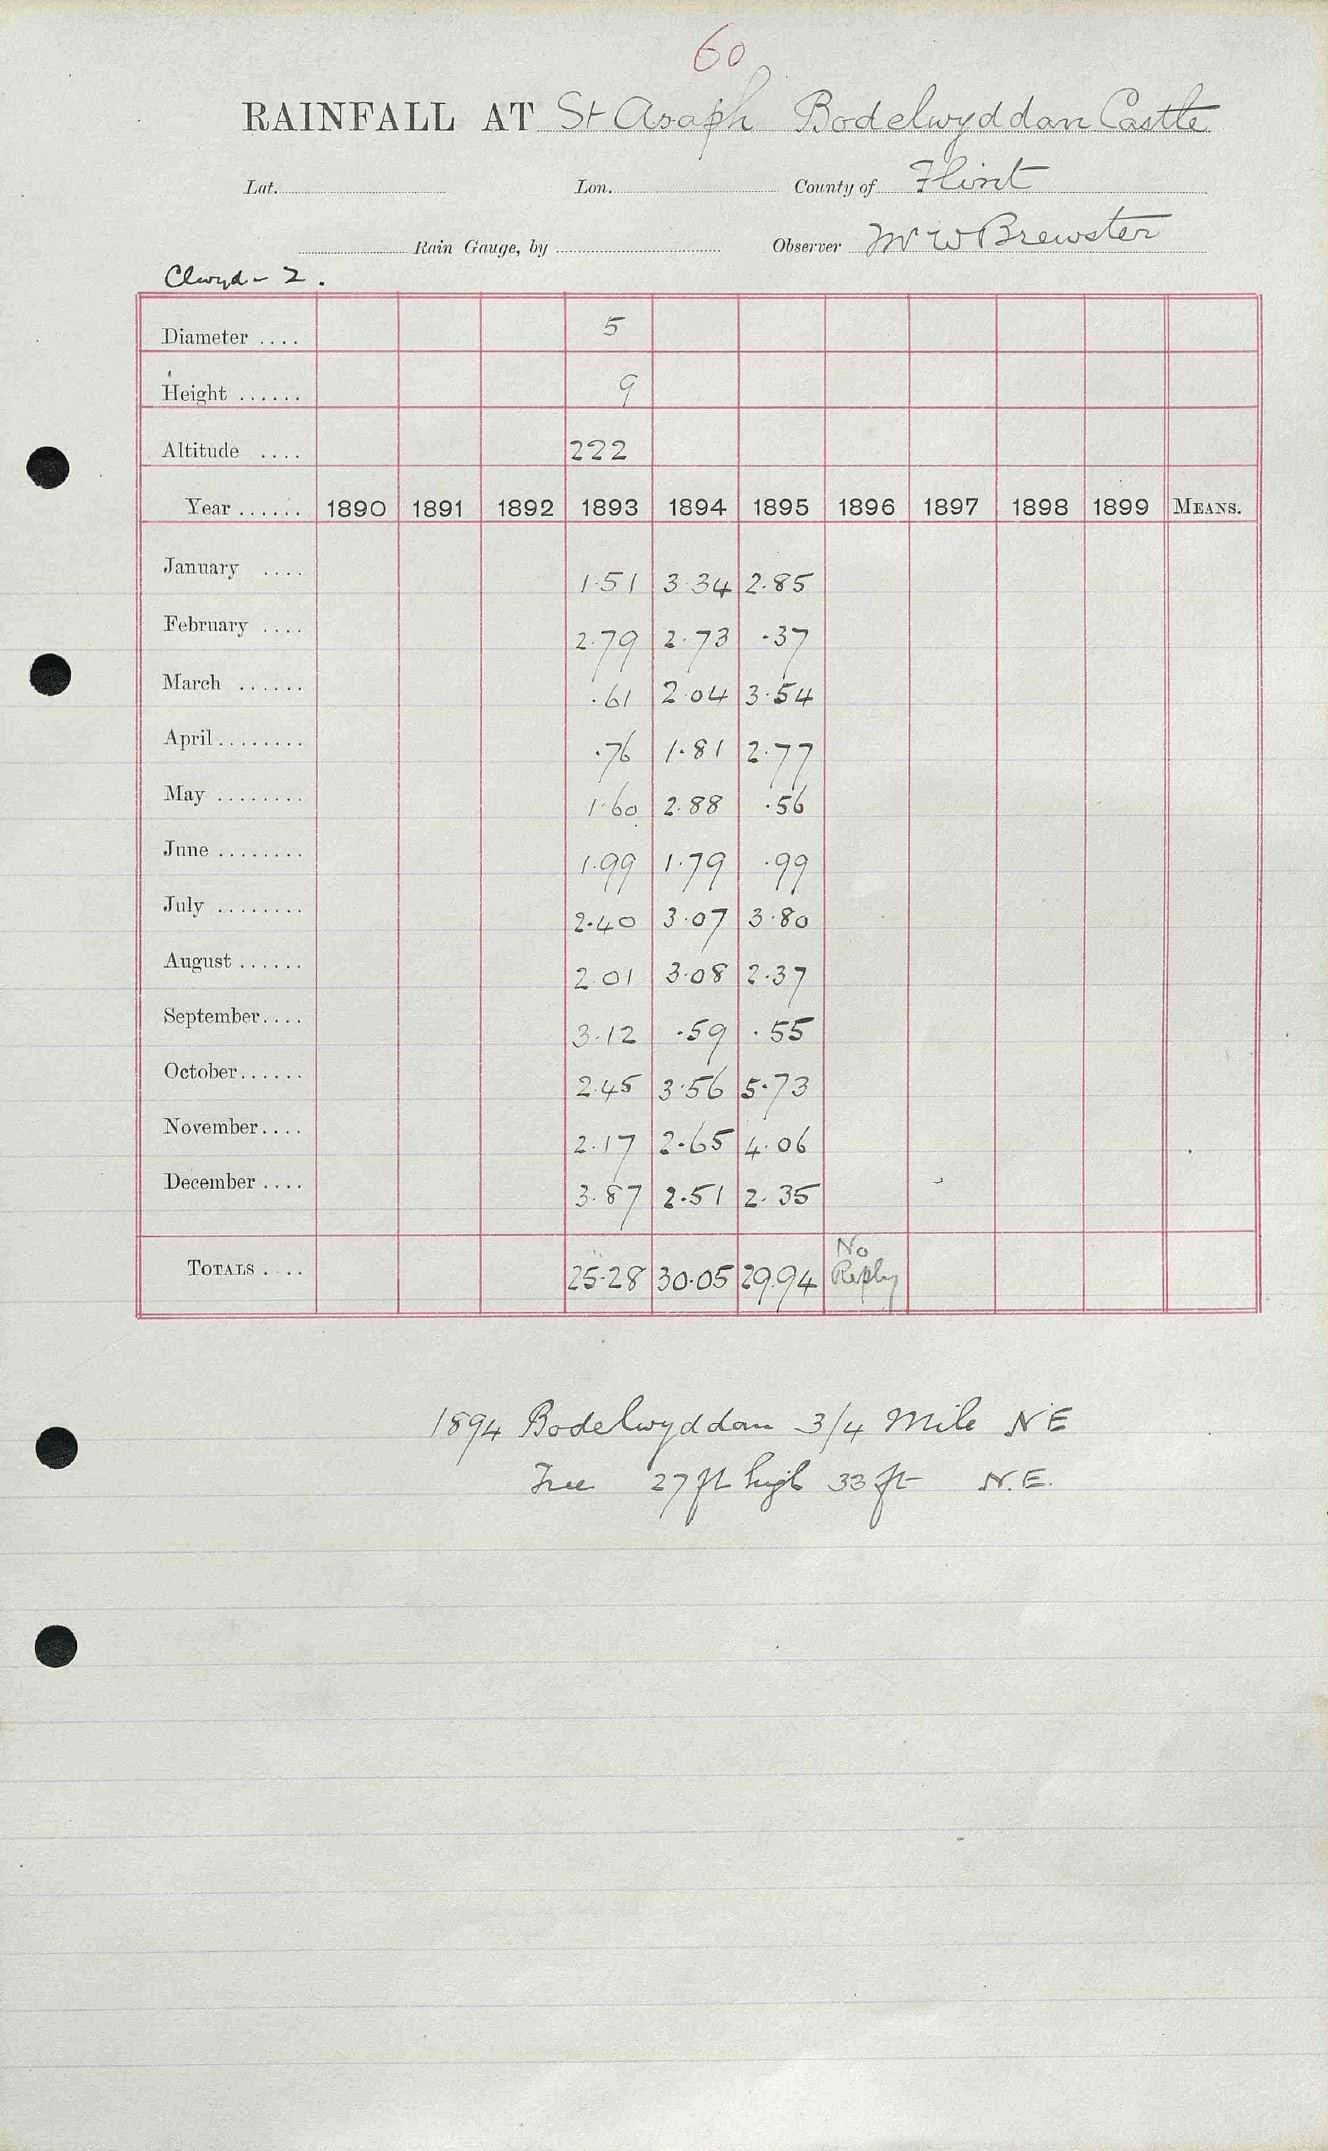 60
RAINFALL AT St Asaph Bodelwyddan Castle
Lat. Lon. County of Flint
Rain Gauge, by Observer Mr W Brewster
Clwyd - 2.
Diameter .... 5
Height ...... 9
Altitude .... 222
Year ...... 1890 1891 1892 1893 1894 1895 1896 1897 1898 1899 MEANS.
January .... 1.51 3.34 2.85
February .... 2.79 2.73 .37
March ...... .61 2.04 3.54
April ........ .76 1.81 2.77
May ........ 1.60 2.88 .56
June ........ 1.99 1.79 .99
July ........ 2.40 3.07 3.80
August ...... 2.01 3.08 2.37
September.... 3.12 .59 .55
October...... 2.45 3.56 5.73
November.... 2.17 2.65 4.06
December .... 3.87 2.51 2.35
TOTALS .... 25.28 30.05 29.94 No Reply
1894 Bodelwyddan 3/4 Mile NE
Tree 27 ft high 33 ft N.E.